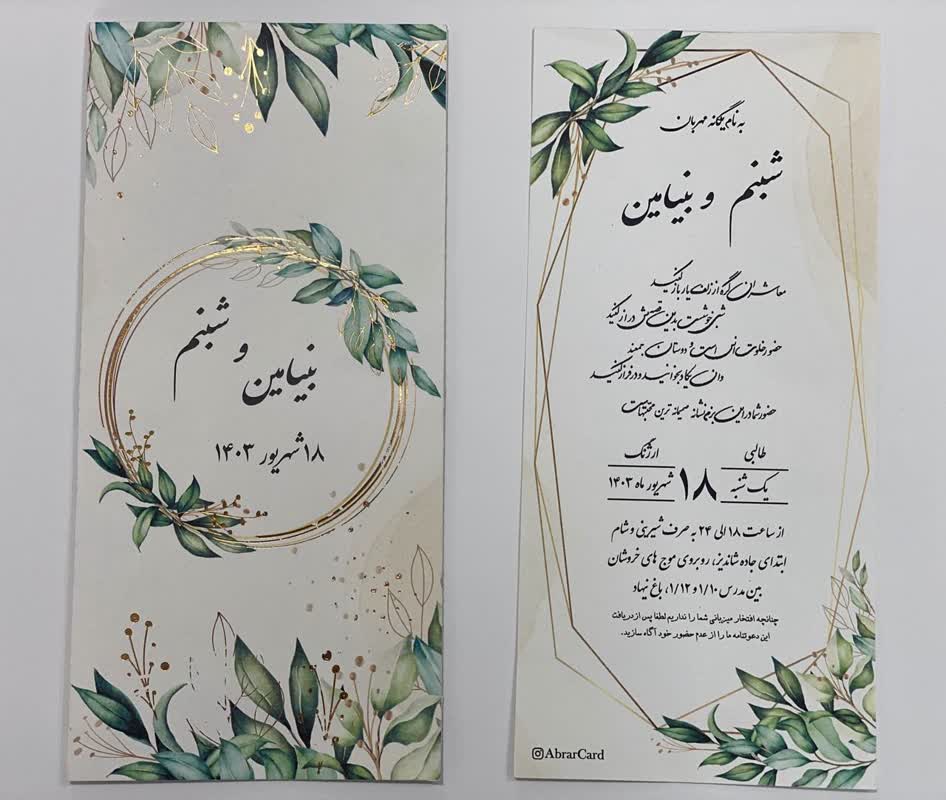 شبنم و بنیامین
۱۸ شهریور ۱۴۰۳
به نام یگانه مهربان
شبنم و بنیامین
معاشران گره از زلف یار باز کنید
شبی خوشست بدین قصه‌اش دراز کنید
حضور خلوت انس است و دوستان جمعند
وان یکاد بخوانید و در فراز کنید
حضور شما در این بزم نشانه صمیمانه ترین محبتهاست
طالبی ارژنگ
یک شنبه ۱۸ شهریور ماه ۱۴۰۳
از ساعت ۱۸ الی ۲۴ به صرف شیرینی و شام
ابتدای جاده شاندیز، روبروی موج های خروشان
بین مدرس ۱/۱۰ و ۱/۱۲، باغ نیهاد
چنانچه افتخار میزبانی شما را نداریم لطفا پس از دریافت
این دعوتنامه ما را از عدم حضور خود آگاه سازید.
AbrarCard